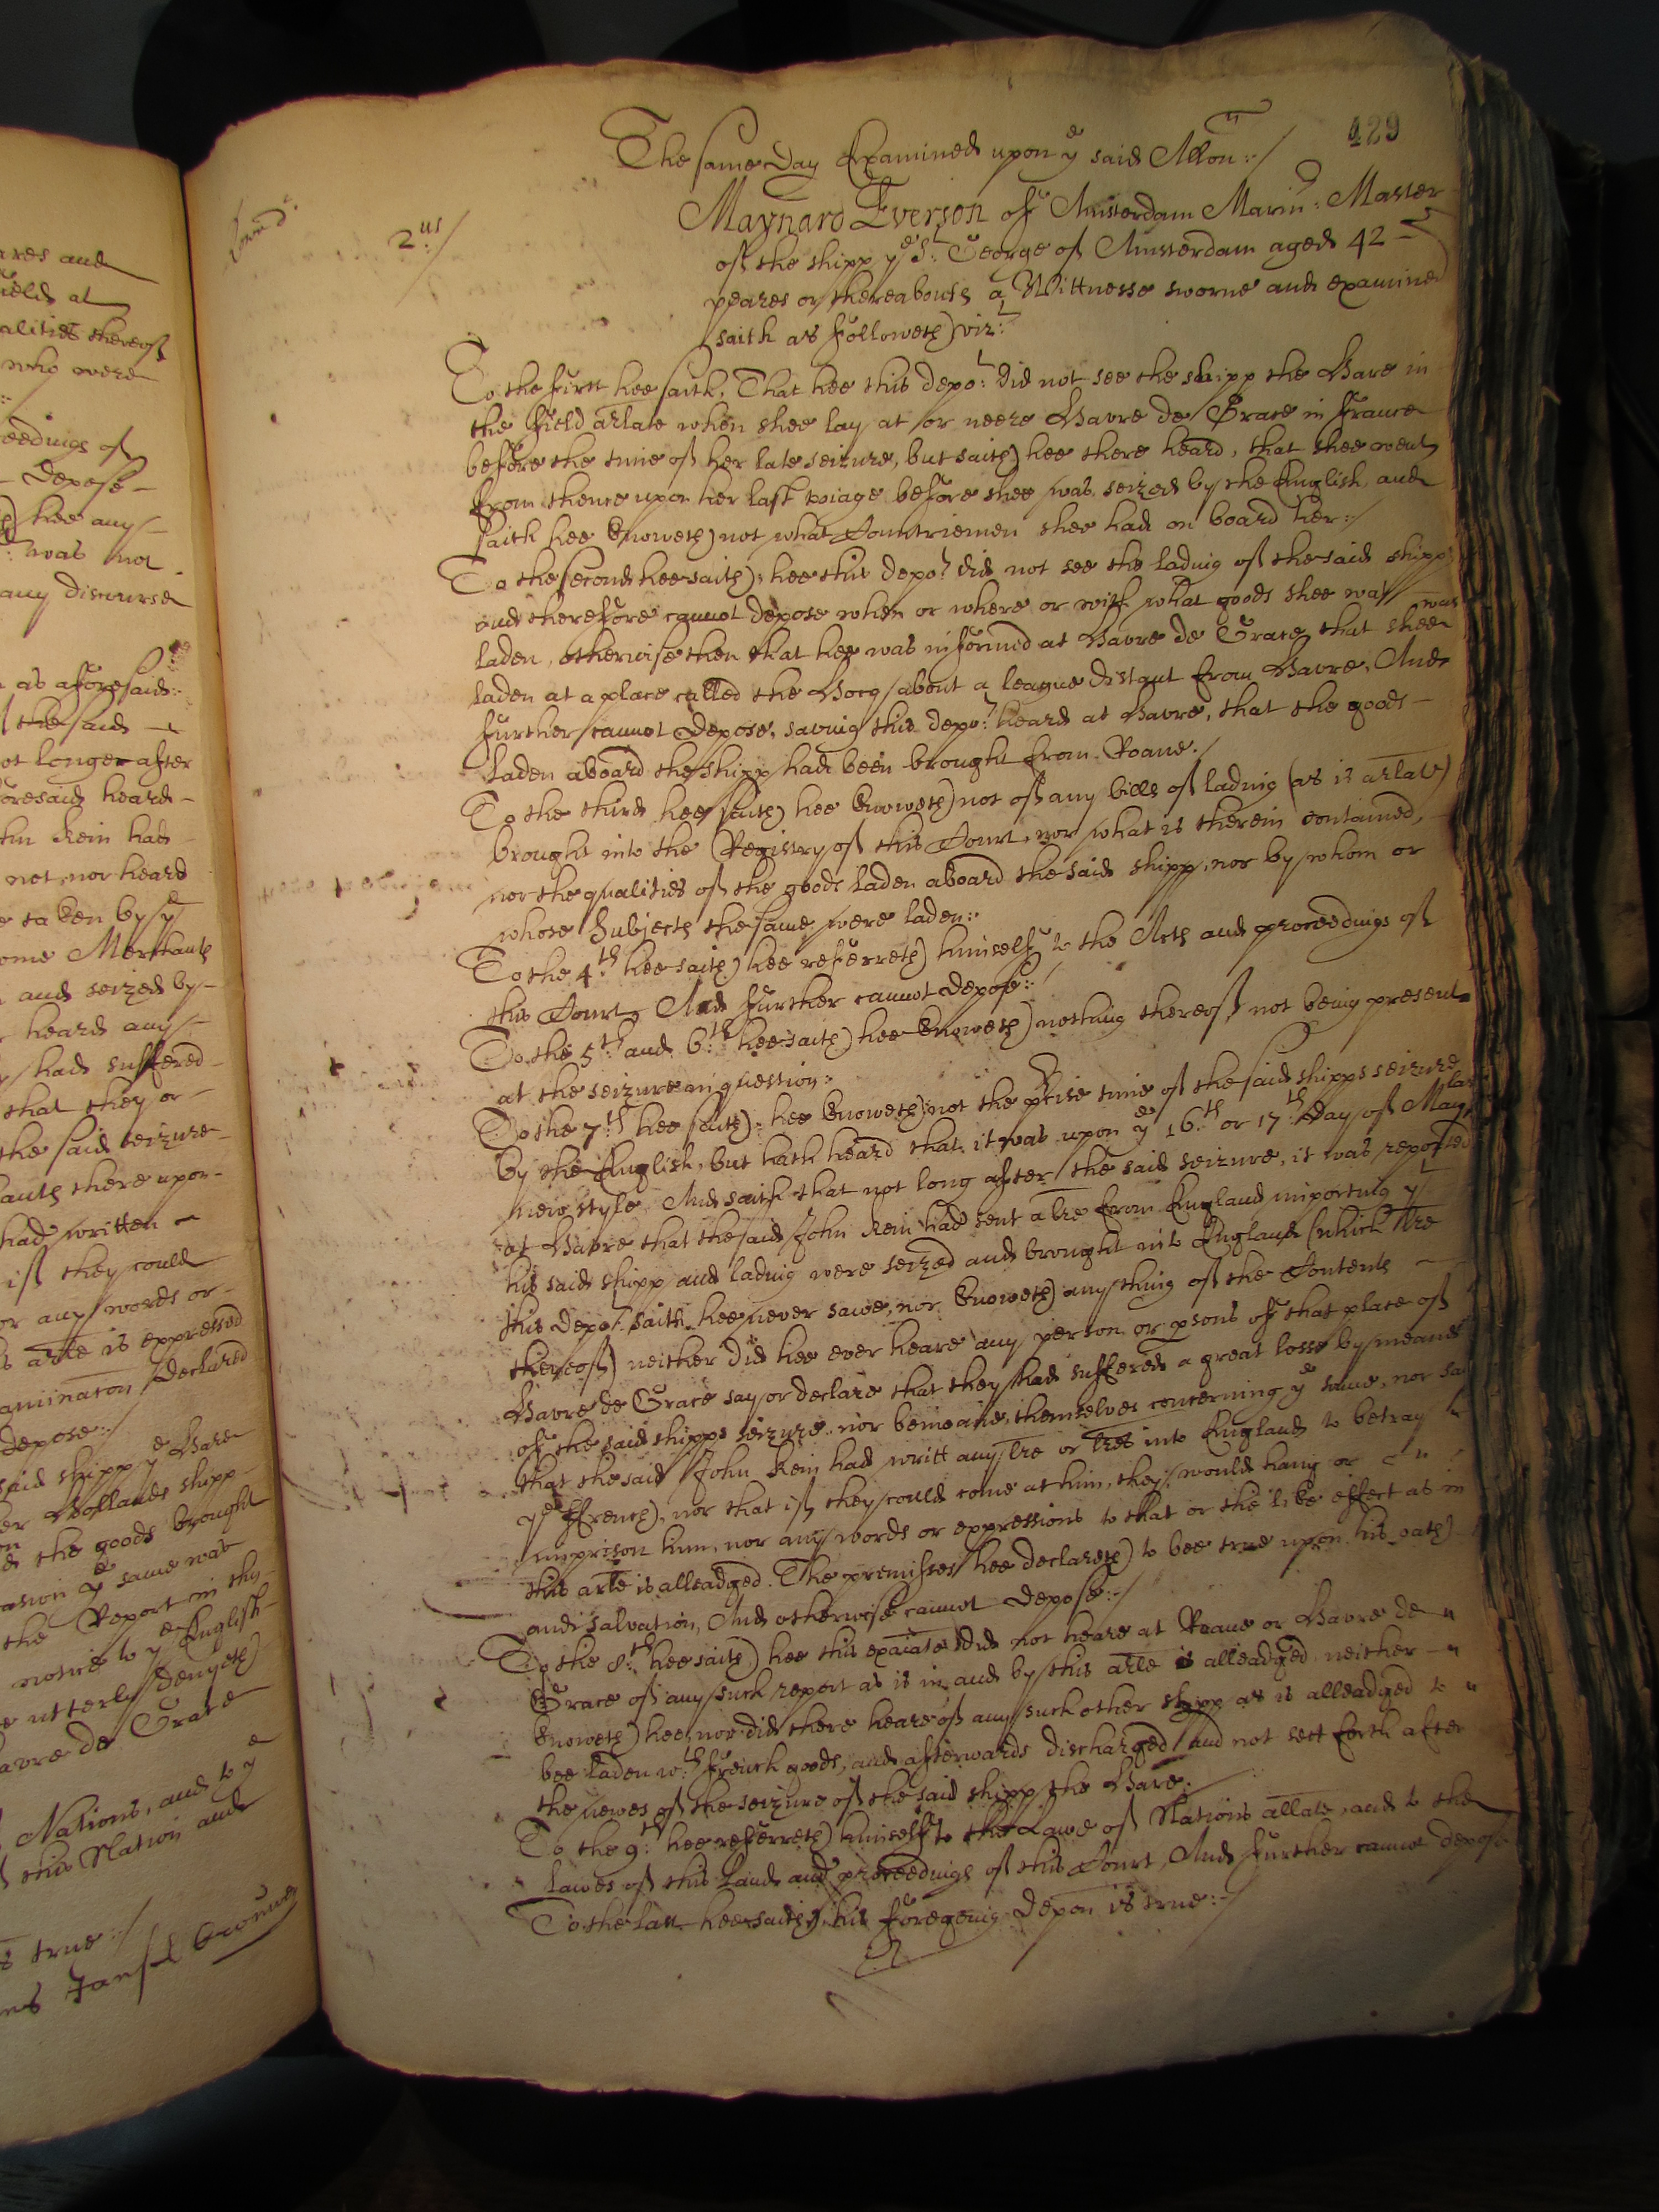 ares and
field at
alities thereof
who were
eedings of
Depose
hee any
was not
any discourse
as aforesaid:
the said
ot longer after
foresaid heard
hn Kein had
not, nor heard
e taken by ye
ome Merchants
and seized by
heard any
had suffered
that they or
the said seizure
ants there upon
had written
if they could
or any words or
s arle is expressed
aminacon declared
depose:/
said shipp ye Hare
er Hollands shipp
d the goods brought
asion ye same was
the Report in this
notice to ye English
e utterly denyeth
avre de Grace
Nations, and to ye
this Nation and
is true:/
ns Jansz
429
The same Day Examined upon ye said Allon:/
2us/
Maynard Everson of Amsterdam Marinr: Master
of the shipp ye St: George of Amsterdam aged 42
yeares or thereabouts a Wittnesse sworne and examined
saith as followeth vizt:
To the first hee saith, That hee this depot: did not see the shipp the Hare in
the field arlate when shee lay at or neere Havre de Grace in France
before the time of her late seizure, but saith hee there heard, that shee went
from thence upon her last voiage before shee was seized by the English, and
saith hee knoweth not what Countriemen shee had on board her:/
To the second hee saith, hee this depot did not see the lading of the said shipp
and therefore cannot depose when or where or with what goods shee was
laden, otherwise then that hee was informed at Havre de Grace, that shee was
laden at a place called the Hocq about a league distant from Havre, And
further cannot depose, saving this depot: heard at Havre, that the goods
laden aboard the shipp had been brought from Roane./
To the third hee saith hee knoweth not of any bills of lading (as is arlate)
brought into the Registry of this Court, nor what is therein contained,
nor the qualities of the goods laden aboard the said shipp, nor by whom or
whose Subjects the same were laden:
To the 4th: hee saith hee referreth himself to the Acts and proceedings of
this Court, And further cannot depose:/
To the 5th: and 6th: hee saith hee knoweth nothing thereof not being present
at the seizure in question:
To the 7th: hee saith, hee knoweth not the pcise time of the said shipps seizure
by the English, but hath heard that it was upon ye 16th or 17th day of May last
new style, And saith that not long after the said seizure, it was reported
at Havre that the said John Kein had sent a lre from England importing yt
his said shipp and lading were seized and brought into England (which lre
this depot. saith hee never sawe, nor knoweth any thing of the Contents
thereof) neither did hee ever heare any person or psons of that place of
Havre de Grace say or declare that they had suffered a great losse by meanes
of the said shipps seizure, nor bemoane themselves concerning ye same, nor say
that the said John Kein had writt any lre or lres into England to betray
ye ffrench, nor that if they could come at him, they would hang or
imprison him, nor any words or expressions to that or the like effect as in
this arle is alleadged. The premisses hee declareth to bee true upon his oath
and salvation, And otherwise cannot depose:/
To the 8th: hee saith hee this exaiate did not heare at Roane or Havre de
Grace of any such report as is in and by this arle is alleadged, neither
knoweth hee, nor did there heare of any such other shipp as is alleadged to
bee laden wth: French goods, and afterwards discharged and not sett forth after
the newes of the seizure of the said shipp the Hare./
To the 9th: hee referreth himself to the Lawe of Nations allate, and to the
lawes of this Land and proceedings of this Court, And further cannot depose
To the last hee saith, his foregoing depon is true:/